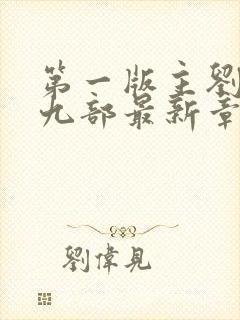 第一版主劉
九部最新章
劉偉見